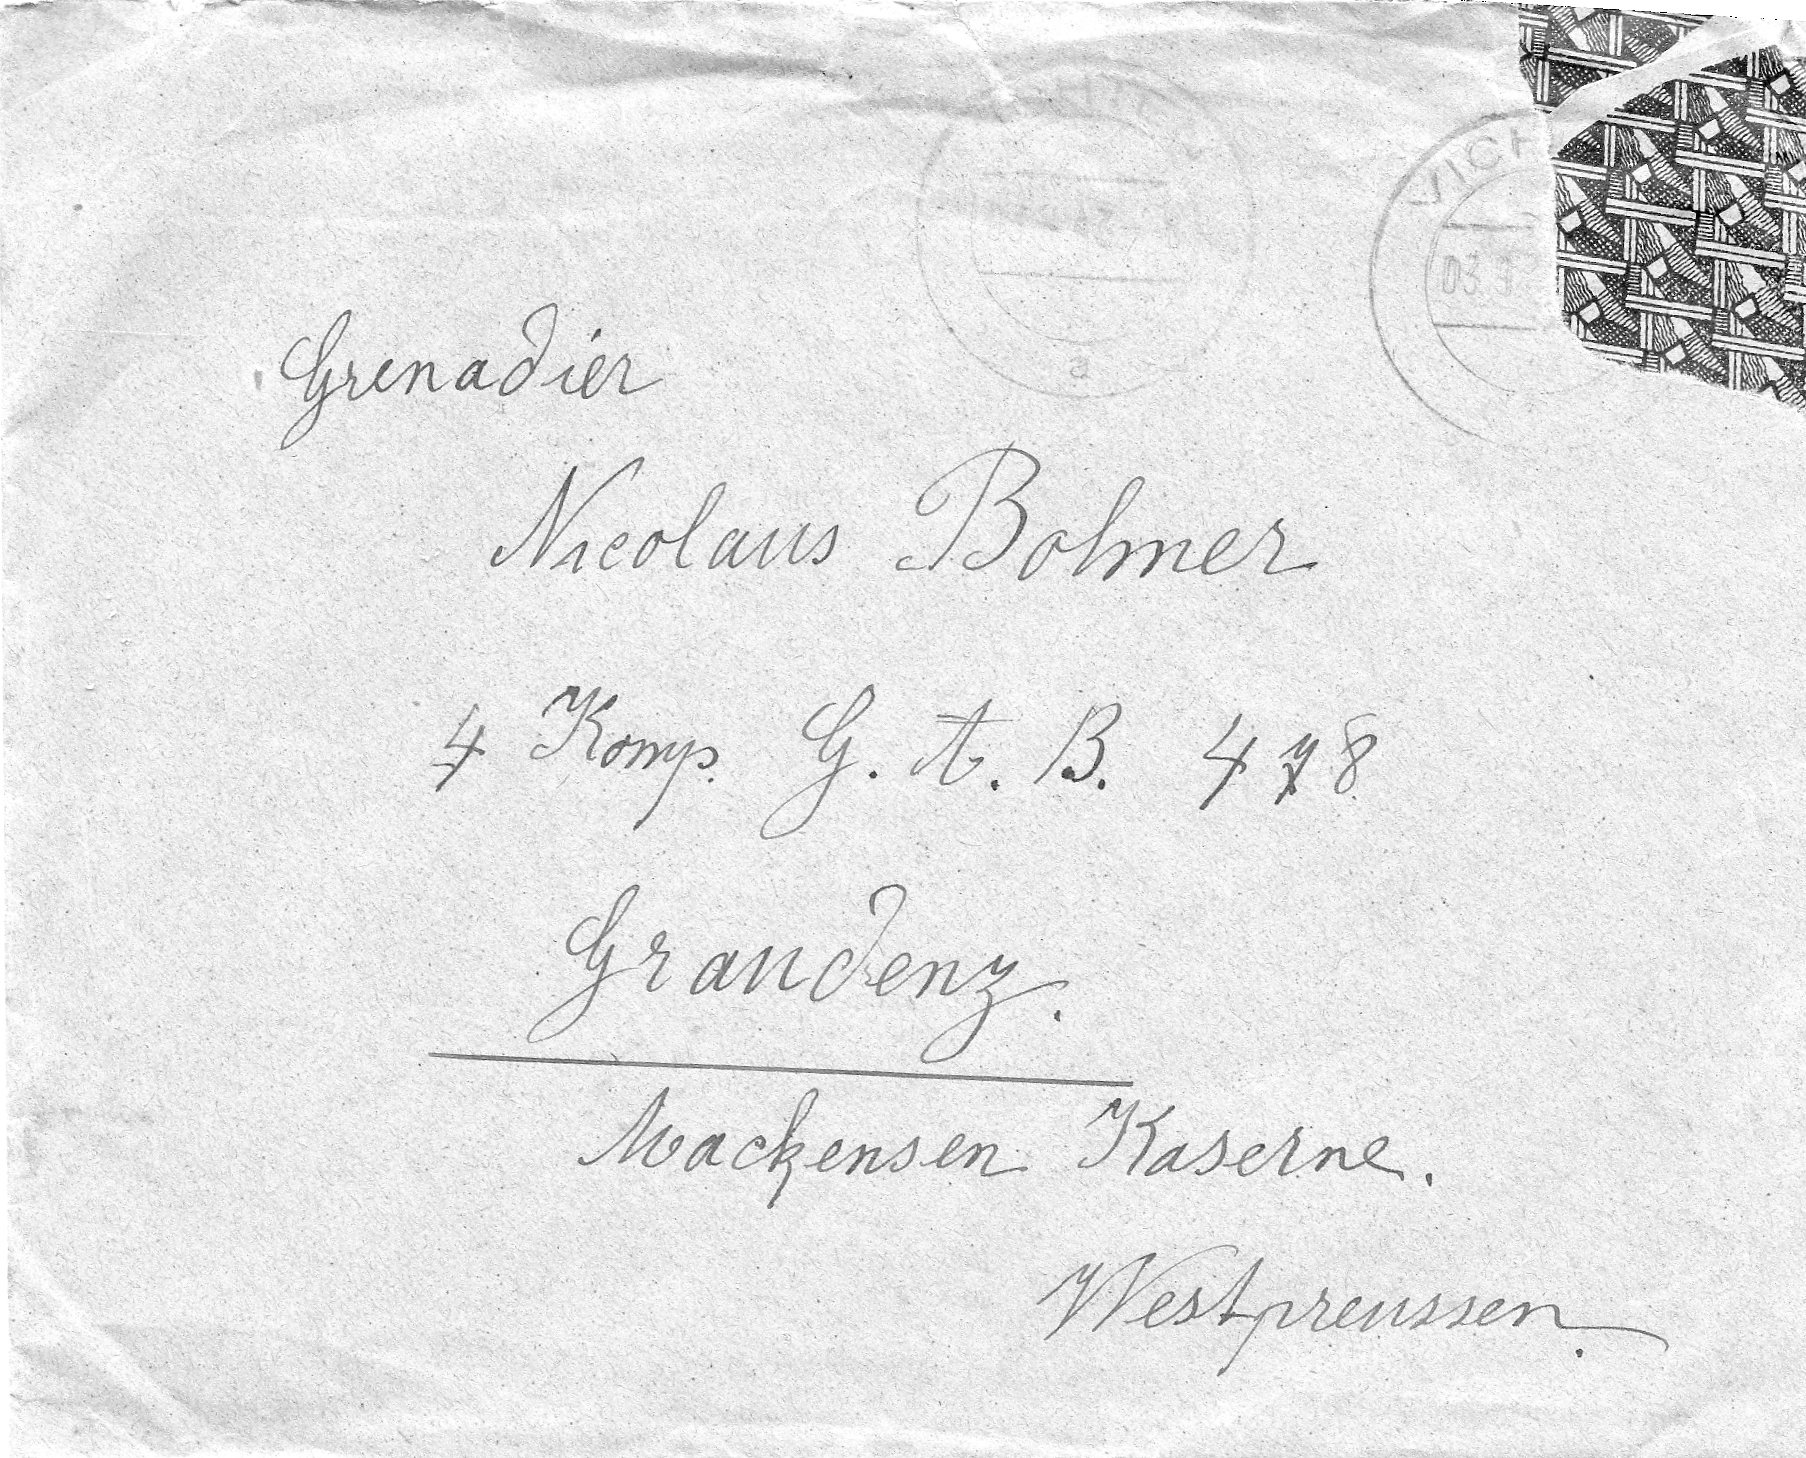 VICH
03.9
a
Grenadier
Nicolaus Bohmer
4 Komp. G. A. B. 478
Graudenz.
Mackensen Kaserne.
Westpreussen.